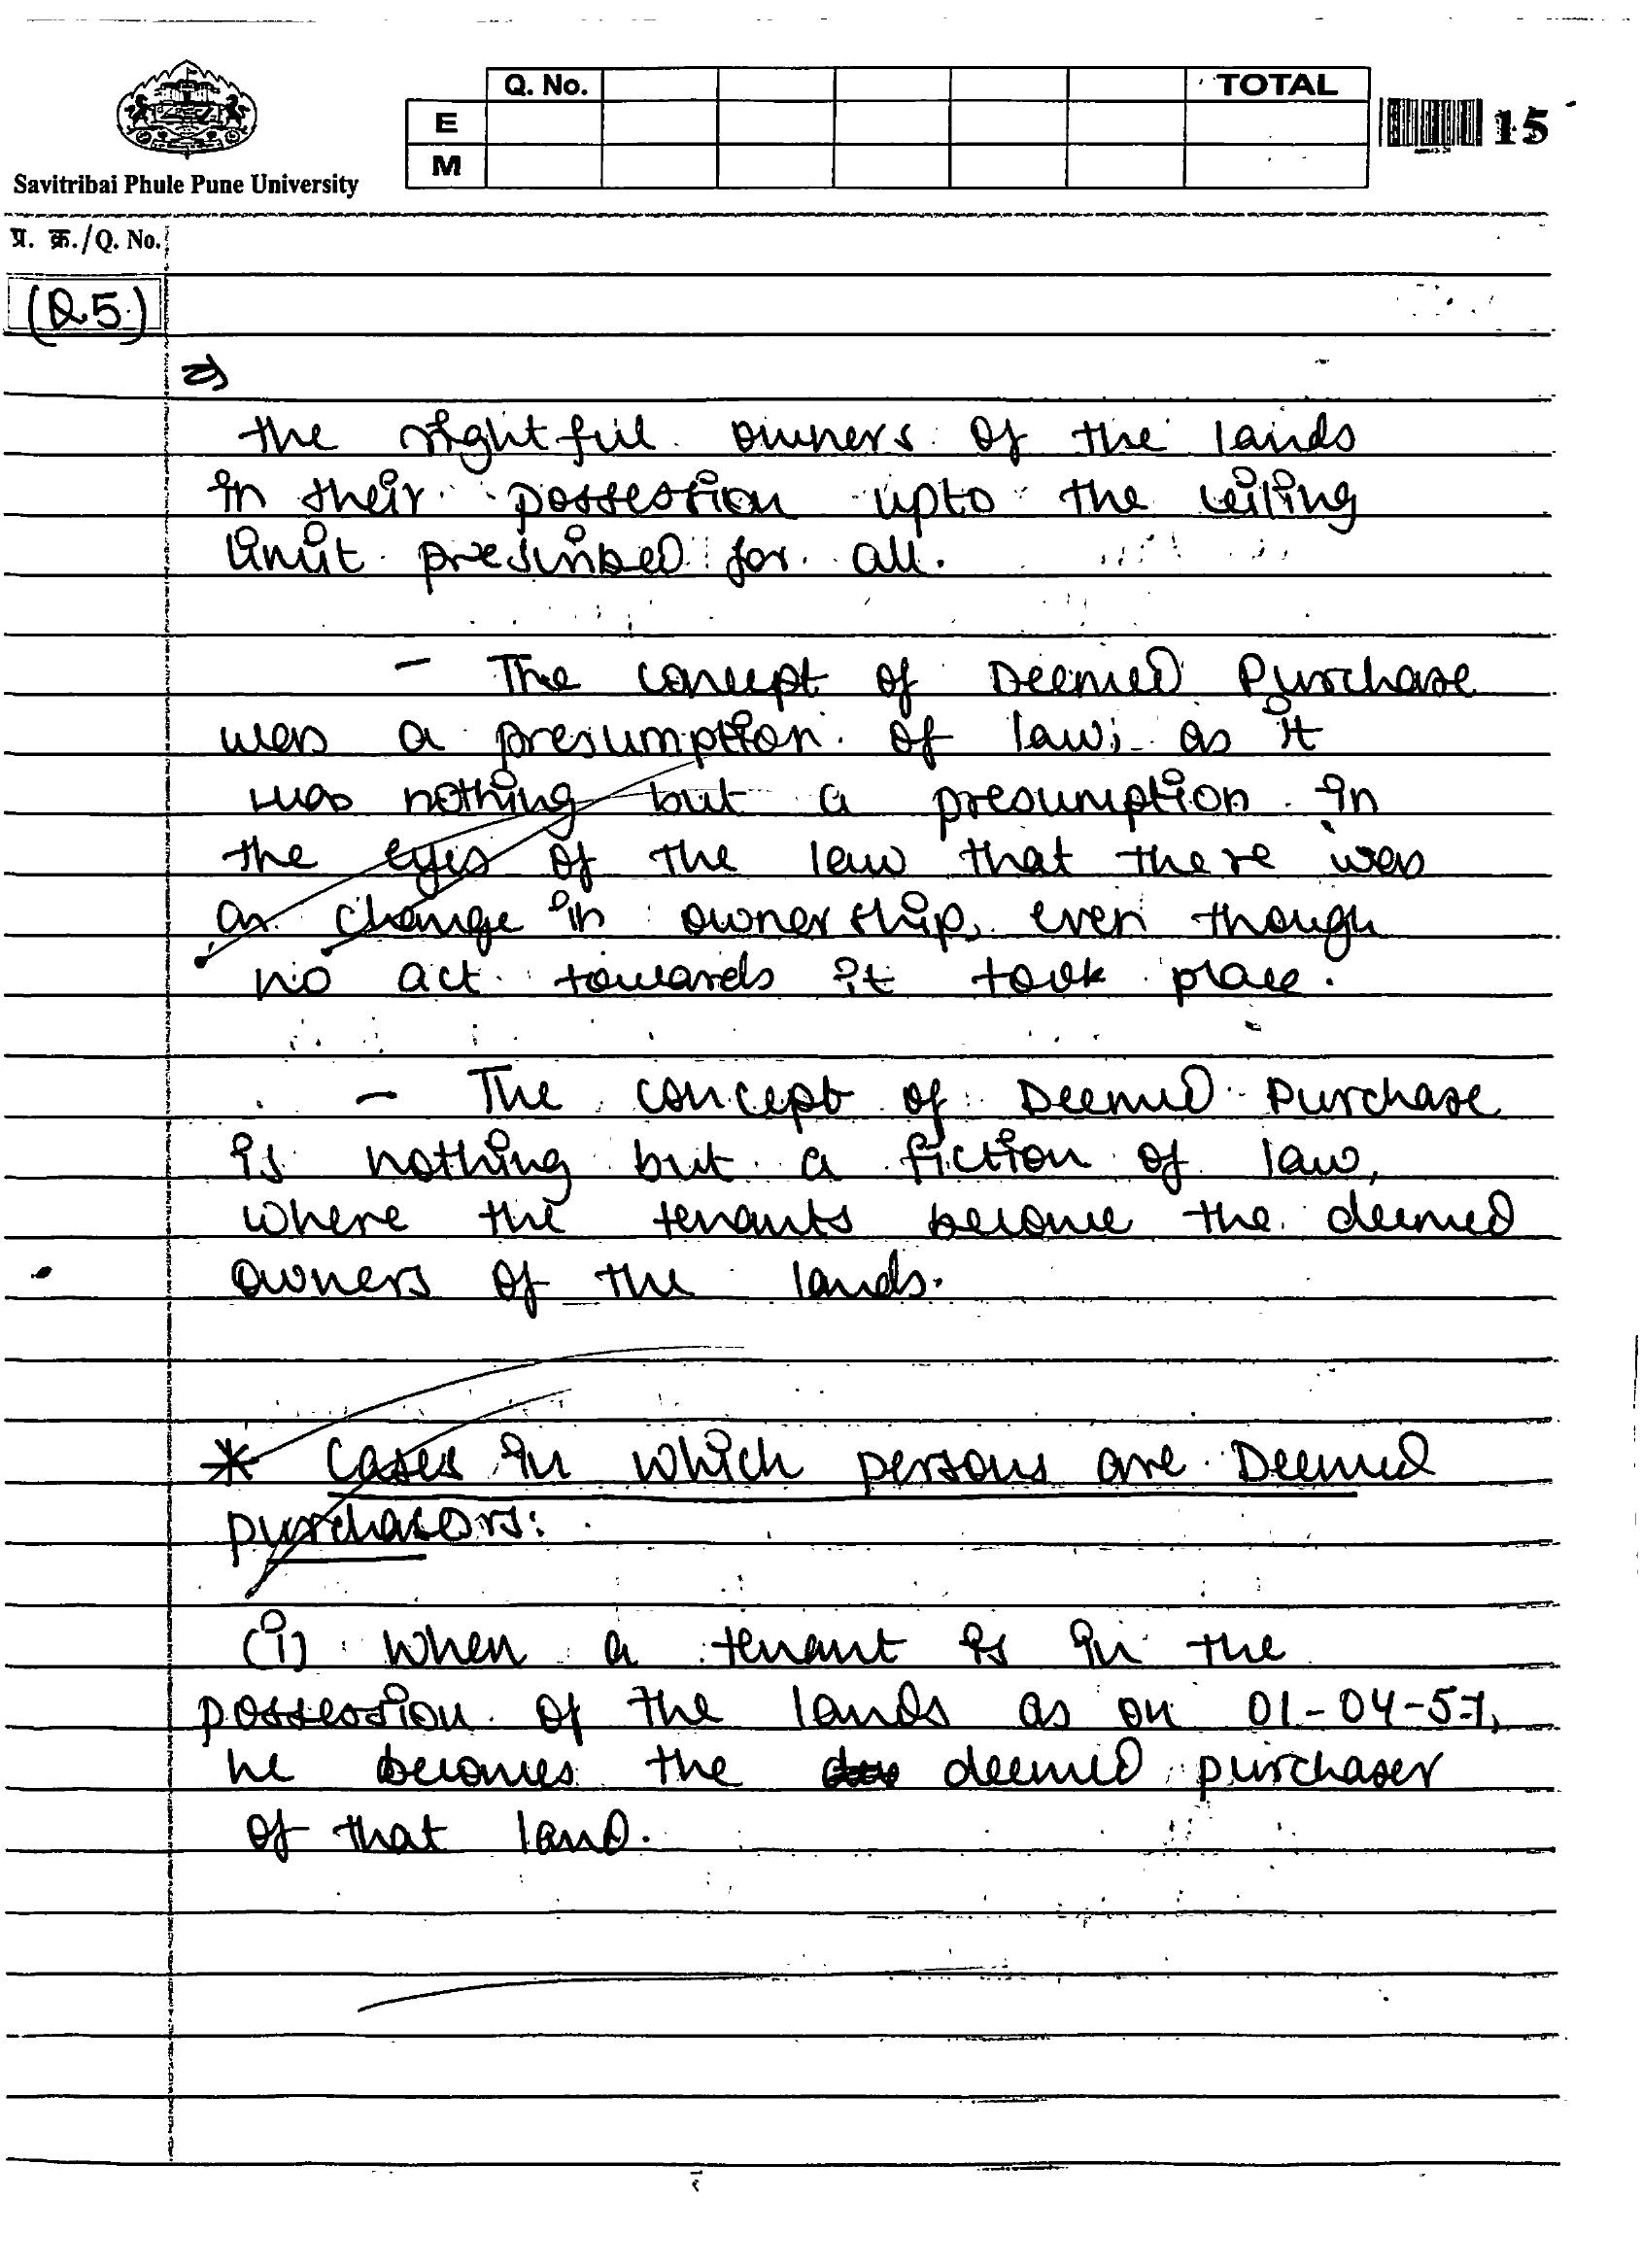 Q. No. TOTAL
E
M
15
Savitribai Phule Pune University
प्र. क्र./Q. No.
(Q.5)
the rightful owners of the lands
in their possession upto the ceiling
limit prescribed for all.
- The concept of Deemed Purchase
was a presumption of law; as it
was nothing but a presumption in
the eyes of the law that there was
a change in ownership, even though
no act towards it took place.
- The concept of Deemed Purchase
is nothing but a fiction of law,
where the tenants become the deemed
owners of the lands.
* Cases in which persons are Deemed
purchasors:
(i) When a tenant is in the
possession of the lands as on 01-04-57,
he becomes the deemed purchaser
of that land.